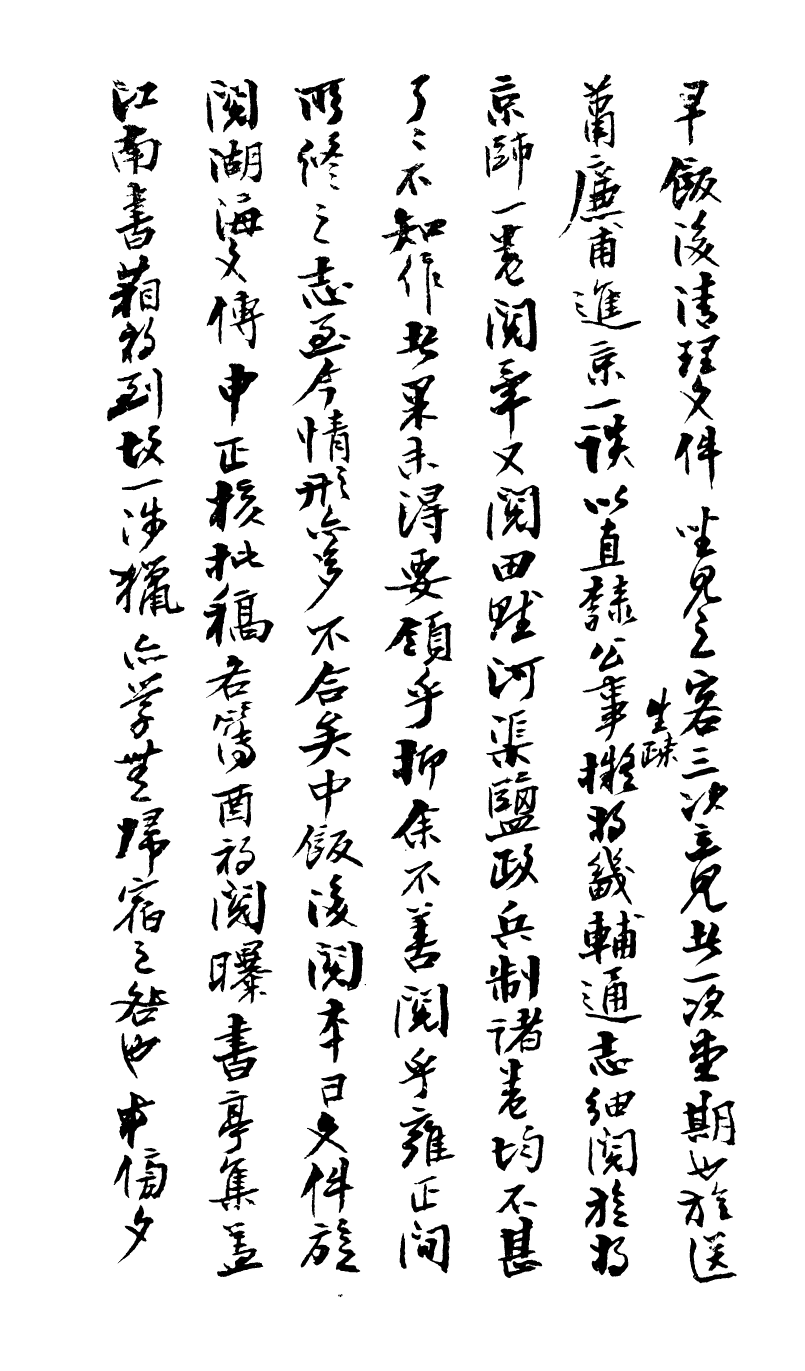 早飯後清理文件坐見之客三次立見者一次衙期也旋送
蕭廉甫進京一談以直隸公事生疎擬將畿輔通志細閱旋將
京師一卷閱畢又閱田賦河渠鹽政兵制諸卷均不甚
了〻不知作者果未得要領乎抑余不善閱乎雍正間
所修之志至今情形亦多不合矣中飯後閱本日文件旋
閱湖海文傳申正核批稿各簿酉初閱曝書亭集蓋
江南書箱初到故一涉獵亦學無歸宿之咎也申傍夕